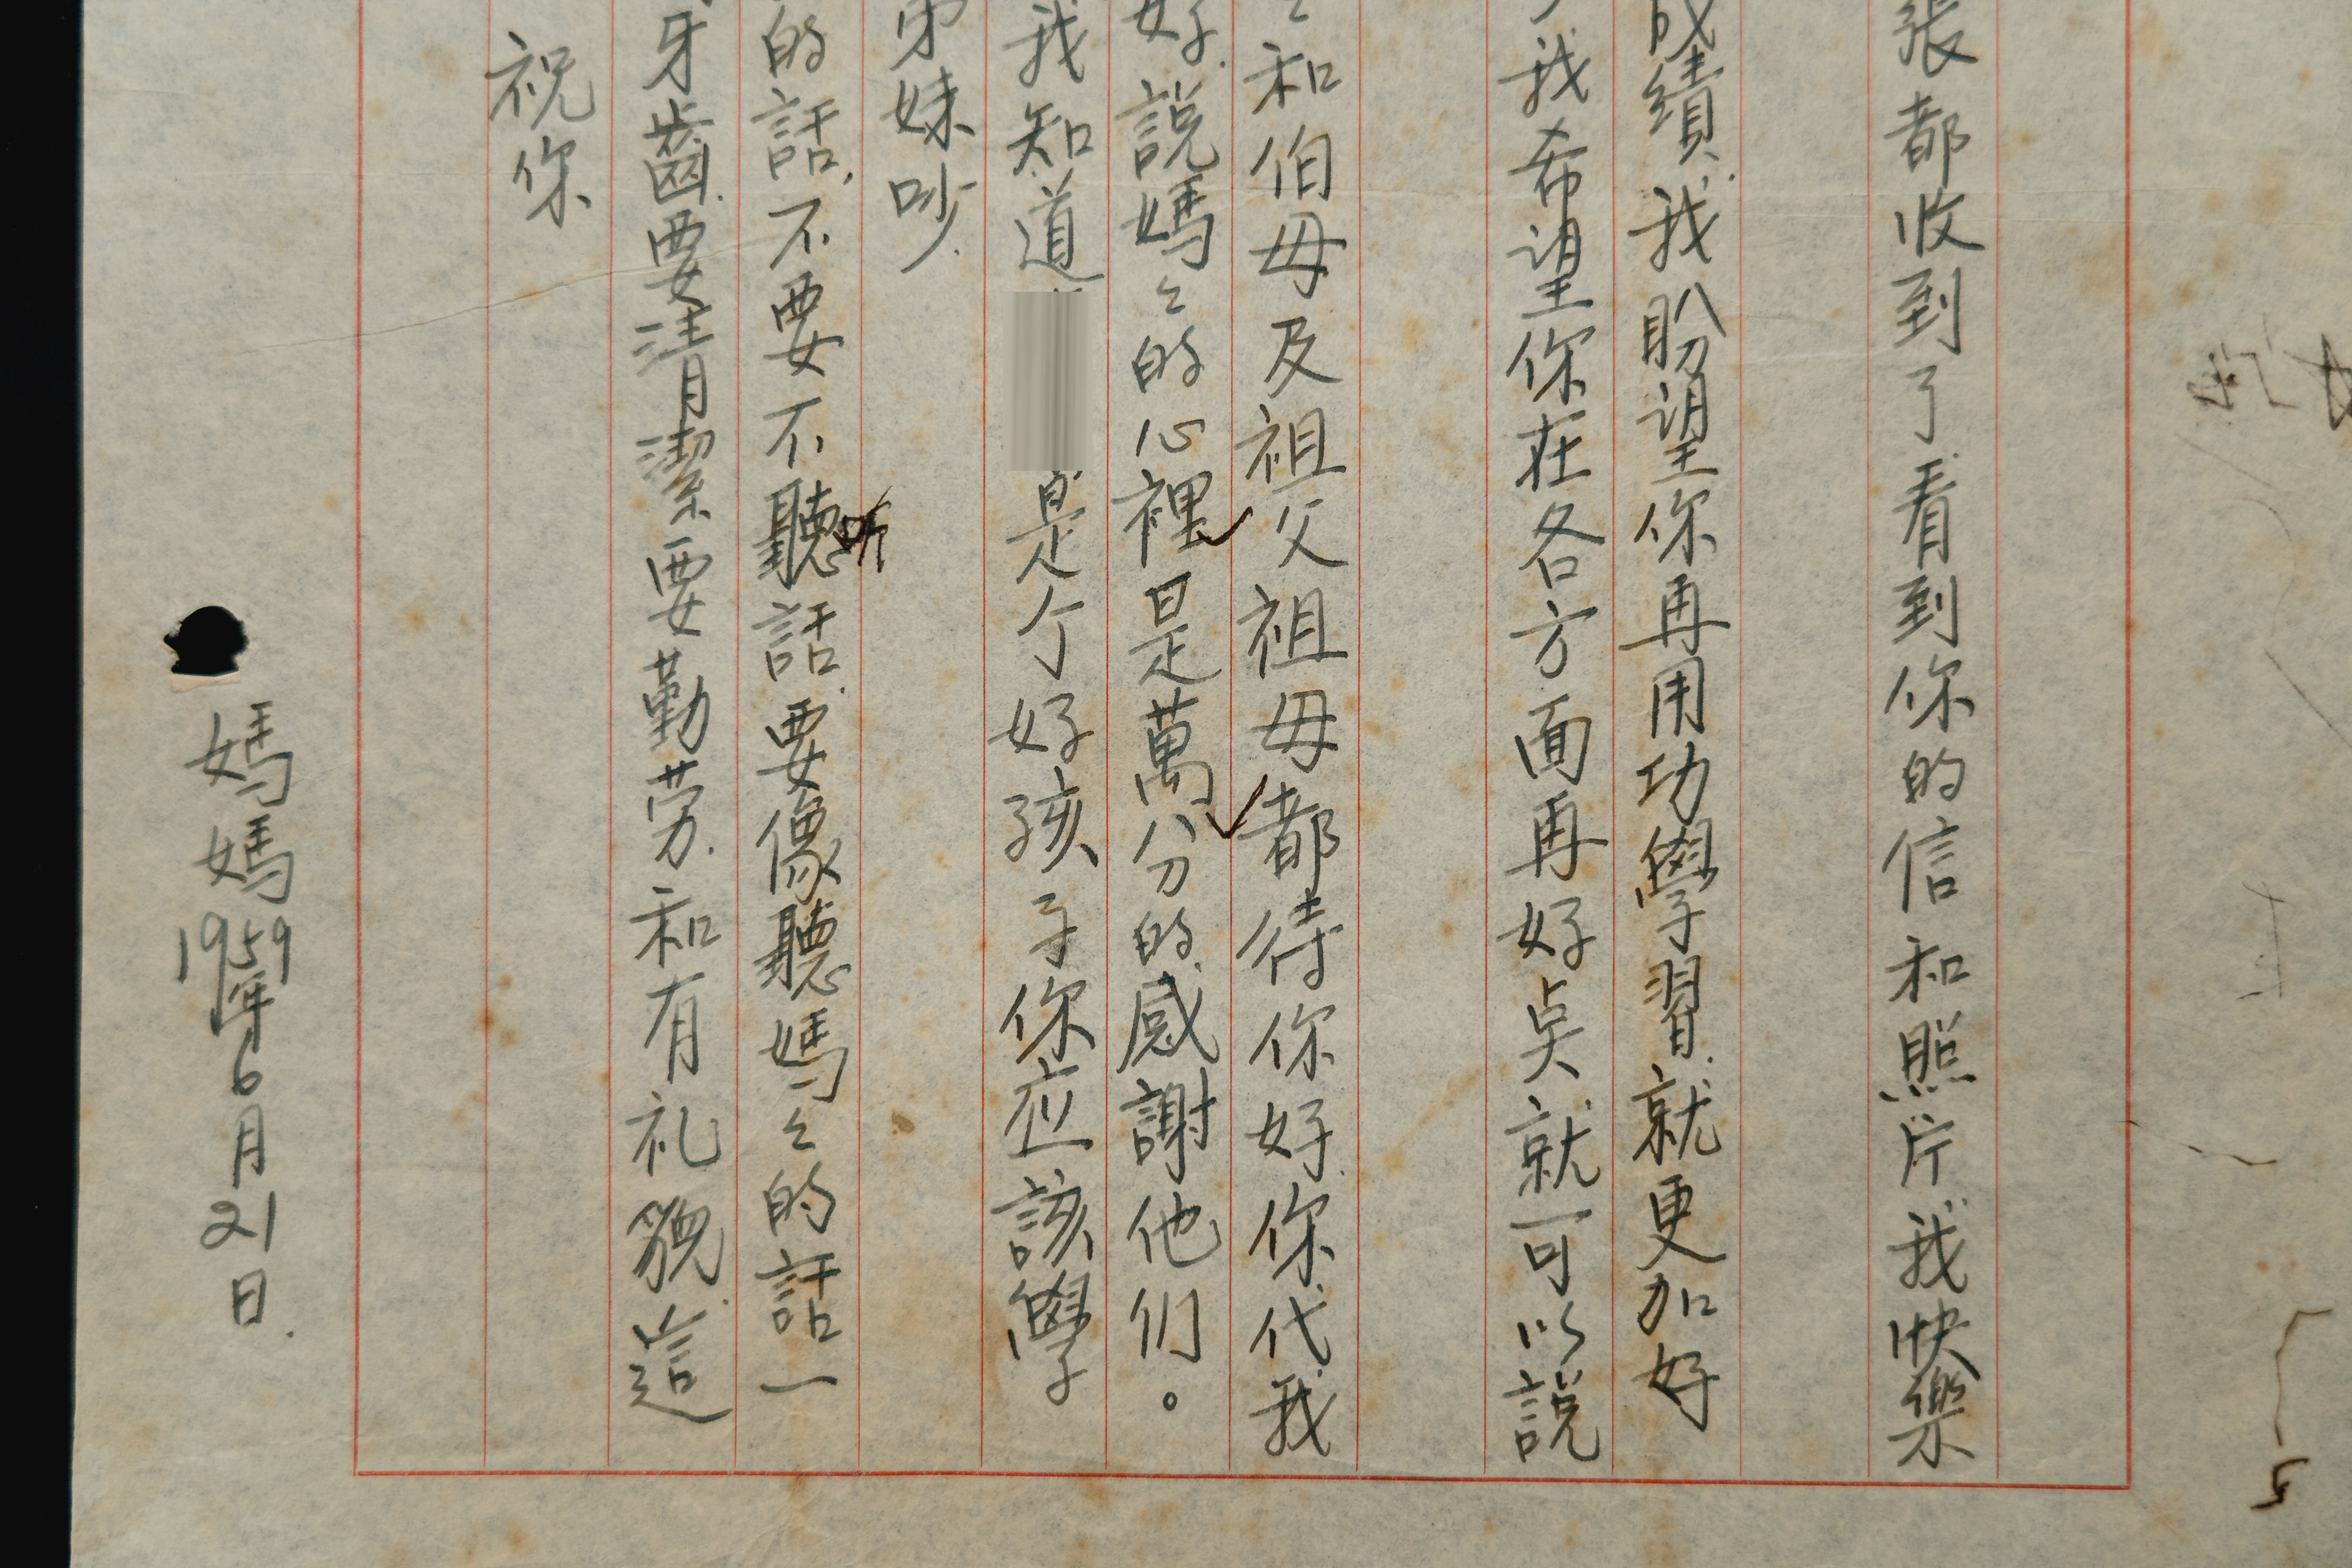 張都收到了看到你的信和照片我快樂
成績,我盼望你再用功學習.就更加好
我希望你在各方面再好㸃就可以說
々和伯母及祖父祖母都待你好.你代我
好.說媽々的心裡是萬分的感謝他们。
我知道
是个好孩子你应該學
弟妹吵.
的話,不要不聽話.要像聽媽々的話一
听
牙齒要清潔要勤劳.和有礼貌.這
祝你
媽媽
1959年6月21日.